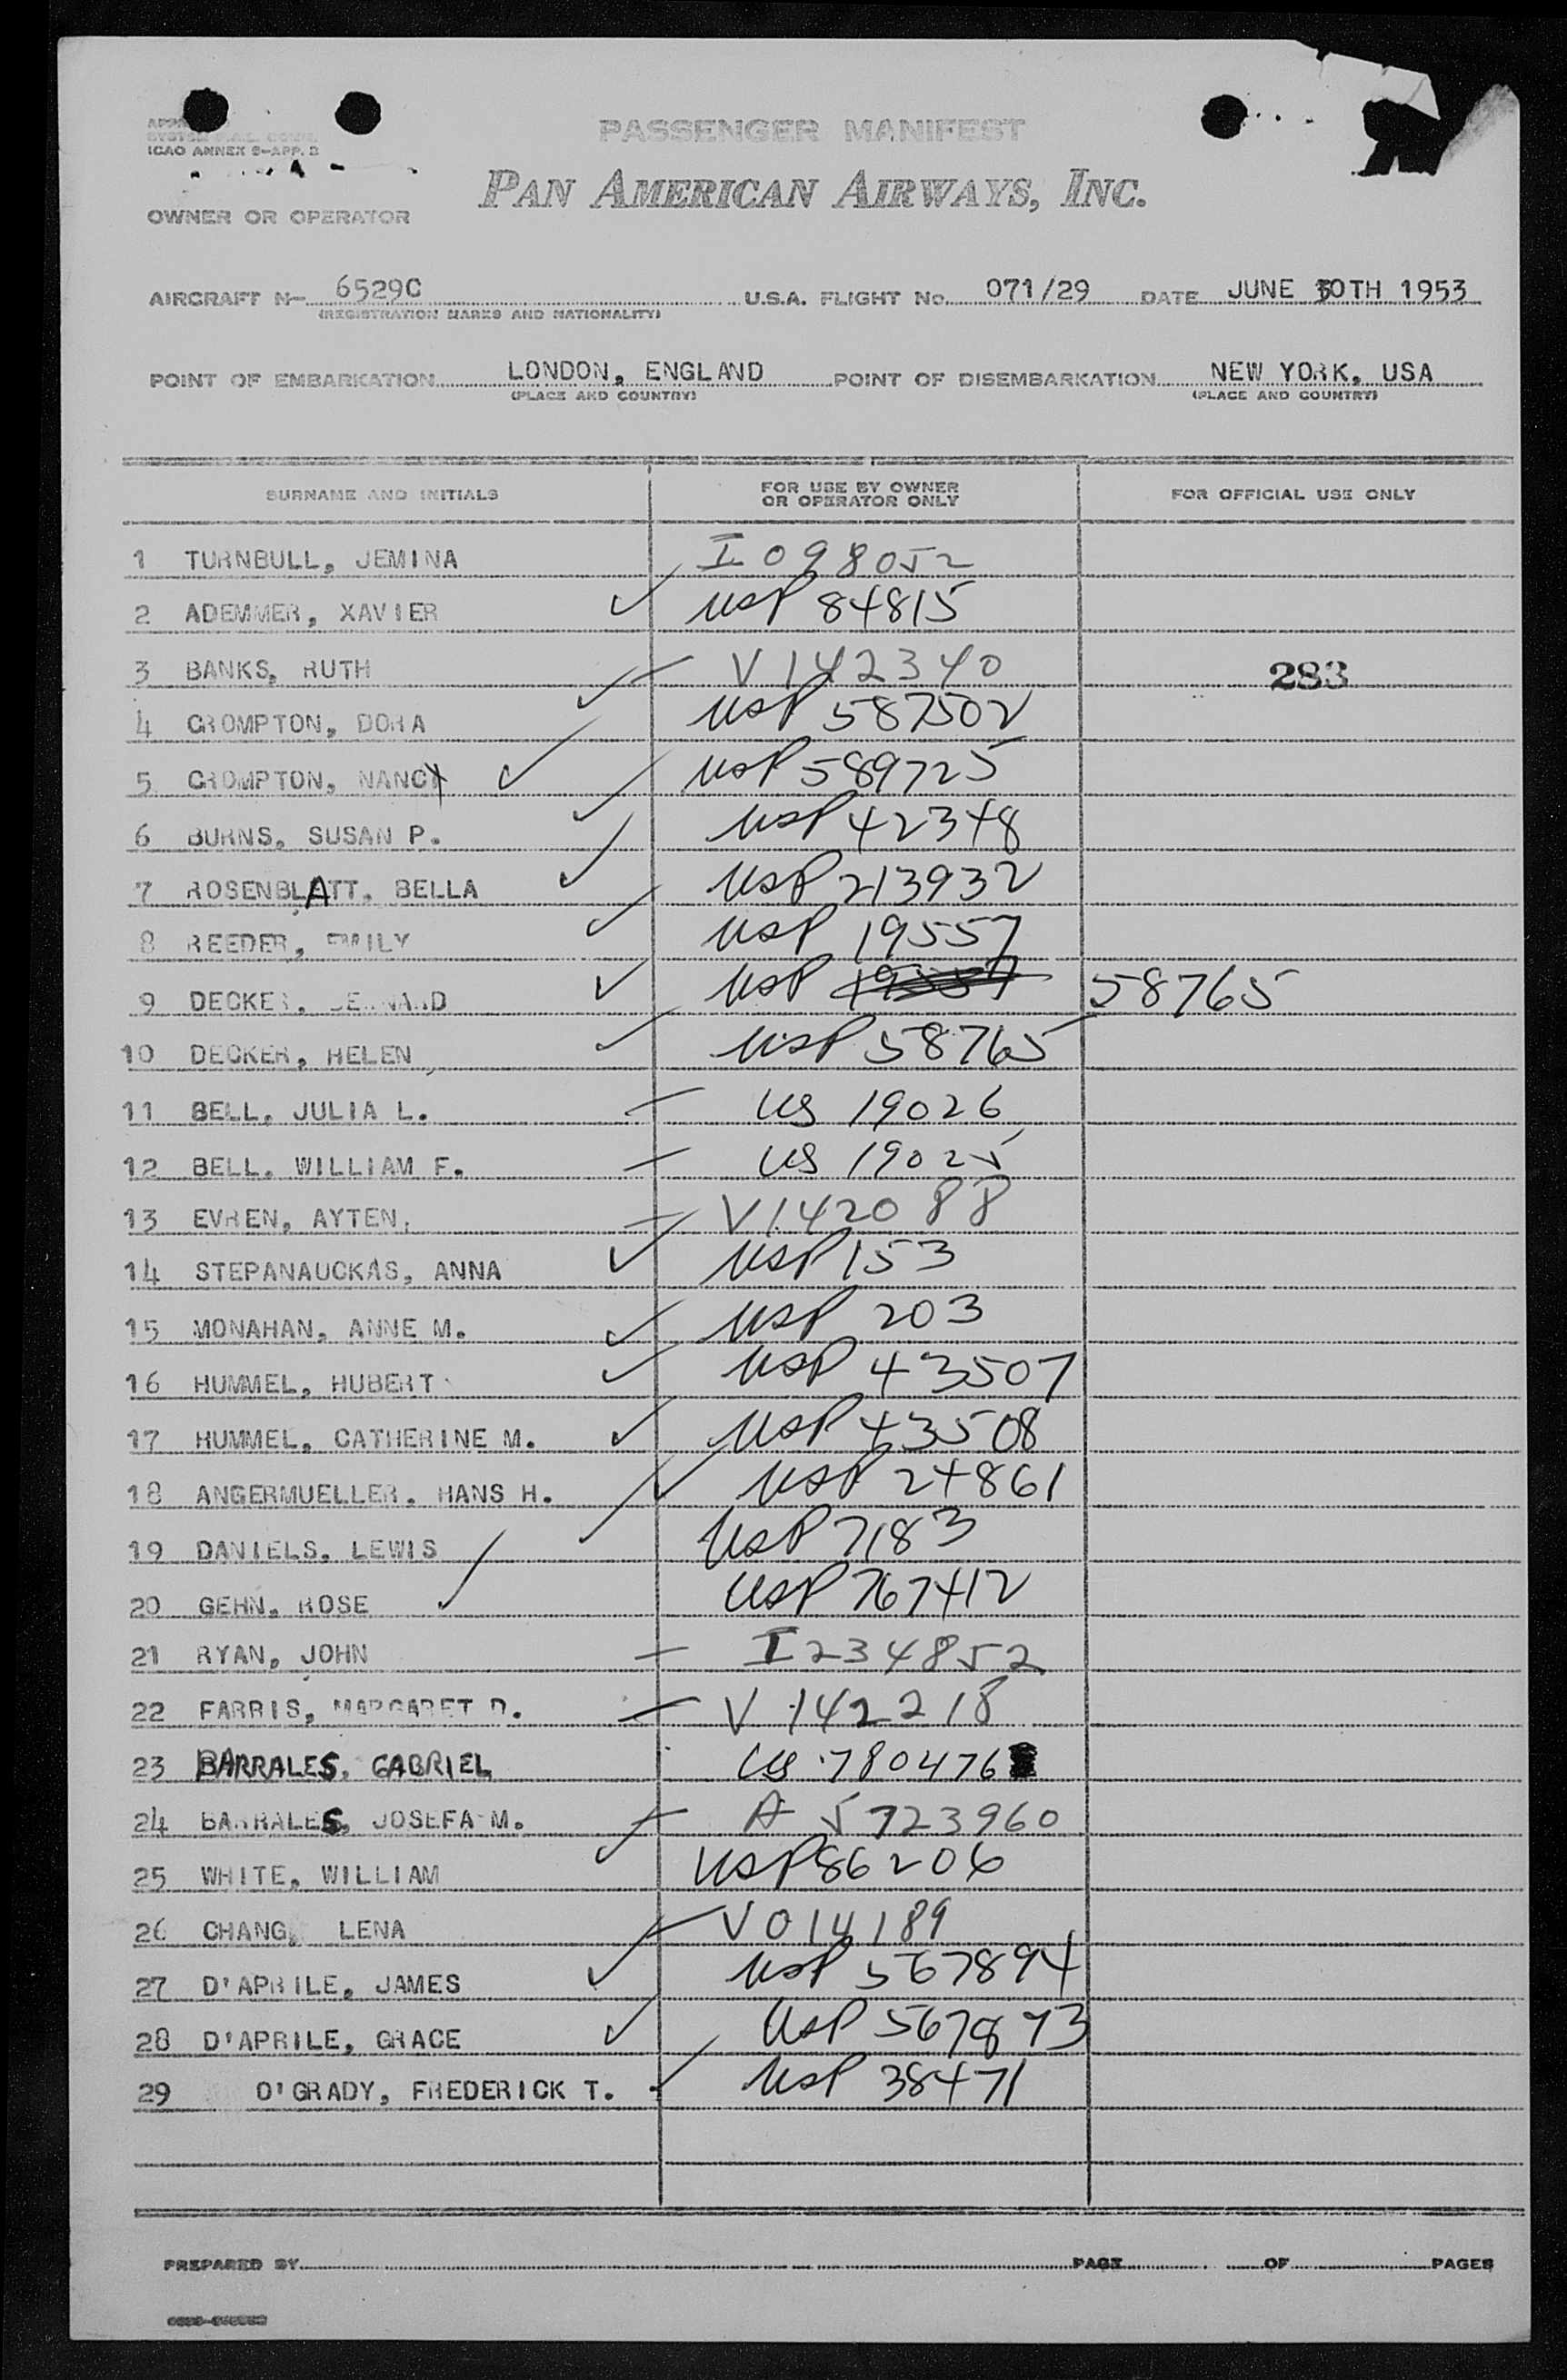 ICAO ANNEX 9-APP. B
PASSENGER MANIFEST
PAN AMERICAN AIRWAYS, INC.
OWNER OR OPERATOR
AIRCRAFT N- 6529C U.S.A. FLIGHT No. 071/29 DATE JUNE 30TH 1953
(REGISTRATION MARKS AND NATIONALITY)
POINT OF EMBARKATION LONDON, ENGLAND POINT OF DISEMBARKATION NEW YORK, USA
(PLACE AND COUNTRY) (PLACE AND COUNTRY)
SURNAME AND INITIALS FOR USE BY OWNER OR OPERATOR ONLY FOR OFFICIAL USE ONLY
1 TURNBULL, JEMINA I 098052
2 ADEMMER, XAVIER ✓ USP 84815
3 BANKS, RUTH — V 142340 283
4 CROMPTON, DORA ✓ USP 587502
5 CROMPTON, NANCY ✓ USP 589725
6 BURNS, SUSAN P. ✓ USP 42348
7 ROSENBLATT, BELLA ✓ USP 213932
8 REEDER, EMILY ✓ USP 19557
9 DECKER, BERNARD ✓ USP 19557 58765
10 DECKER, HELEN ✓ USP 58765
11 BELL, JULIA L. — US 19026
12 BELL, WILLIAM F. — US 19025
13 EVREN, AYTEN. — V 142088
14 STEPANAUCKAS, ANNA ✓ USP 153
15 MONAHAN, ANNE M. ✓ USP 203
16 HUMMEL, HUBERT ✓ USP 43507
17 HUMMEL, CATHERINE M. ✓ USP 43508
18 ANGERMUELLER, HANS H. ✓ USP 24861
19 DANIELS, LEWIS ✓ USP 7183
20 GEHN, ROSE ✓ USP 767412
21 RYAN, JOHN — I 234852
22 FARRIS, MARGARET D. — V 142218
23 BARRALES, GABRIEL US 780476
24 BARRALES, JOSEFA M. — A 5723960
25 WHITE, WILLIAM ✓ USP 86206
26 CHANG, LENA — V 014189
27 D'APRILE, JAMES ✓ USP 567894
28 D'APRILE, GRACE ✓ USP 567893
29 O'GRADY, FREDERICK T. ✓ USP 38471
PREPARED BY PAGE OF PAGES